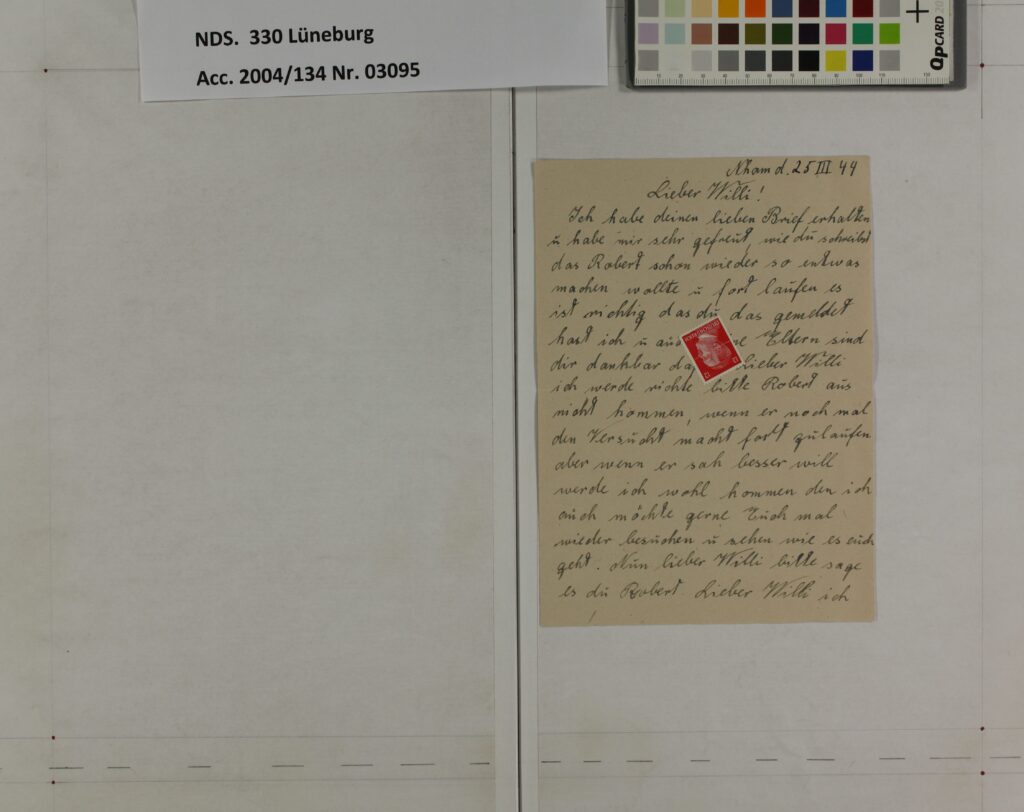 NDS. 330 Lüneburg
Acc. 2004/134 Nr. 03095
QpCARD 20
Nham d. 25 III 44
Lieber Willi!
Ich habe deinen lieben Brief erhalten
u habe mir sehr gefreut, wie du schreibst
das Robert schon wieder so entwas
machen wollte u fort laufen es
ist richtig das du das gemeldet
hast ich u Eltern sind
dir dankbar lieber Willi
ich werde bitte Robert aus
nicht kommen, wenn er noch mal
den Versucht macht fort zulaufen
aber wenn er sah besser will
werde ich wohl kommen den ich
auch möchte gerne Euch mal
wieder besuchen u sehen wie es euch
geht. Nun lieber Willi bitte sage
es du Robert. Lieber Willi ich